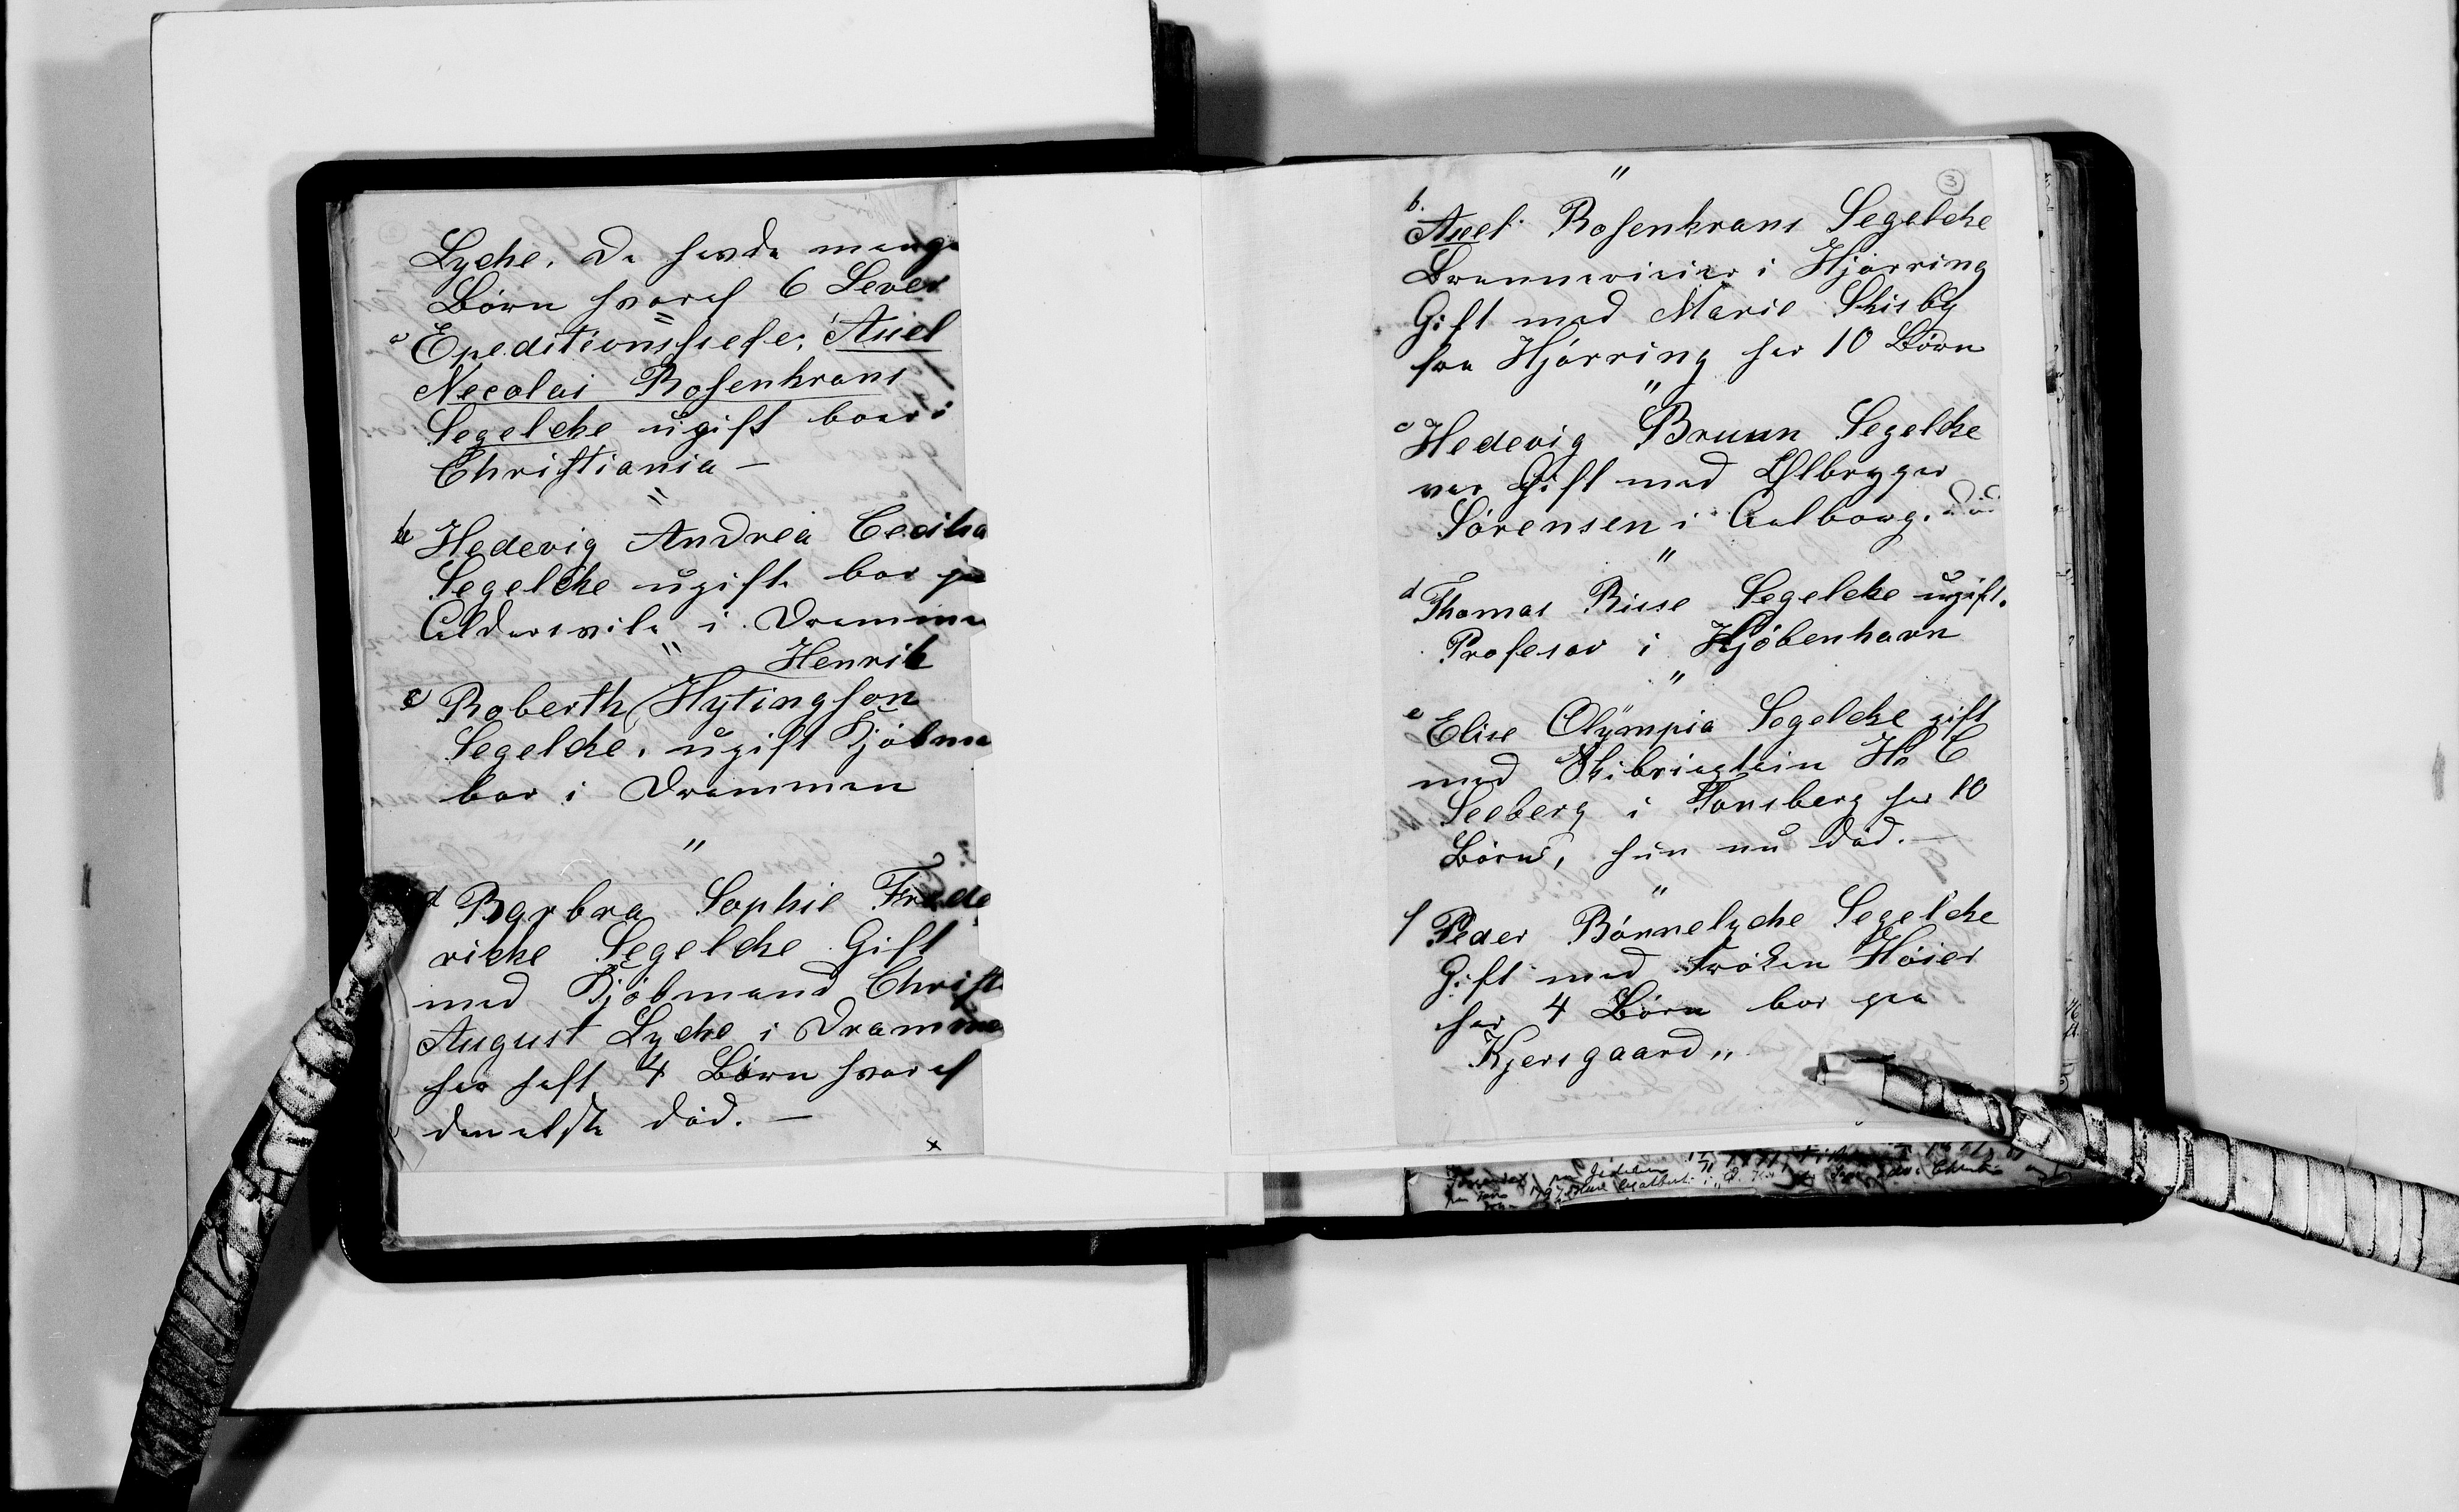 Lyche. De havde mange
Børn hvoraf 6 Lever
"
a Expeditionschefe, Axel
Necolai Rosenkrans
Segelcke ugift boer i
Christiania —
"
b Hedevig Andrea Cecilia
Segelcke ugift. bor paa
Aldersvile i Drammen
"
Henrik
c Roberth Hytingson
Segelcke. ugift Kjøbma
bor i Drammen
"
d Barbra Sophie Frede
rikke Segelcke Gift
med Kjøbmand Christ
August Lyche i Drammen
har haft 4 Børn hvoraf
den elste død. —
x
3
"
b.
Axel Rosenkrans Segelcke
i Hjørring
Gift med Marie Skisby
fra Hjørring har 10 Børn
"
c Hedevig Bruun Segelcke
var Gift med Ølbryger
Sørensen i Aalborg. død
"
d Thomas Riise Segelcke ugift.
Profesor i Kjøbenhavn
"
e Elise Olÿmpia Segelcke gift
med Skibscaptein H. C
Seeberg i Tønsberg har 10
Børn, hun nu død. —
"
f Peder Bønnelyche Segelcke
Gift med Frøken Høier
har 4 Børn bor paa
Kjersgaard "